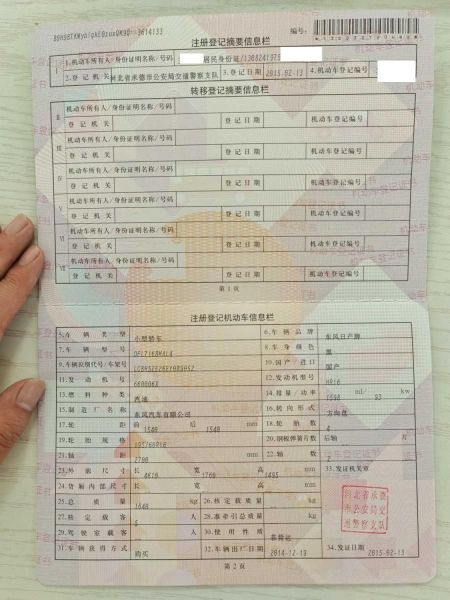 注册登记摘要信息栏
编号:
1.机动车所有人/身份证明名称/号码 居民身份证/
2.登记机关 河北省承德市公安局交通警察支队 3.登记日期 2015-02-13 4.机动车登记编号
转移登记摘要信息栏
II 机动车所有人/身份证明名称/号码
登记机关 登记日期 机动车登记编号
III 机动车所有人/身份证明名称/号码
登记机关 登记日期 机动车登记编号
IV 机动车所有人/身份证明名称/号码
登记机关 登记日期 机动车登记编号
V 机动车所有人/身份证明名称/号码
登记机关 登记日期 机动车登记编号
VI 机动车所有人/身份证明名称/号码
登记机关 登记日期 机动车登记编号
VII 机动车所有人/身份证明名称/号码
登记机关 登记日期 机动车登记编号
第1页
注册登记机动车信息栏
5.车辆类型 小型轿车 6.车辆品牌 东风日产牌
7.车辆型号 8.车身颜色 黑
9.车辆识别代号/车架号 10.国产/进口 国产
11.发动机号 12.发动机型号 HR16
13.燃料种类 汽油 14.排量/功率 1598 ml/ 93 kw
15.制造厂名称 东风汽车有限公司 16.转向形式 方向盘
17.轮距 前 1540 后 1540 mm 18.轮胎数 4
19.轮胎规格 195/60R16 20.钢板弹簧片数 后轴 片
21.轴距 2700 mm 22.轴数 2
23.外廓尺寸 长 宽 1760 高 1495 mm 33.发证机关章
24.货厢内部尺寸 长 宽 高 mm
25.总质量 kg 26.核定载质量 kg
27.核定载客 5 人 28.准牵引总质量 kg
29.驾驶室载客 人 30.使用性质 非营运
31.车辆获得方式 购买 32.车辆出厂日期 2014-12-19 34.发证日期 2015-02-13
河北省承德
市公安局交
通警察支队
第2页